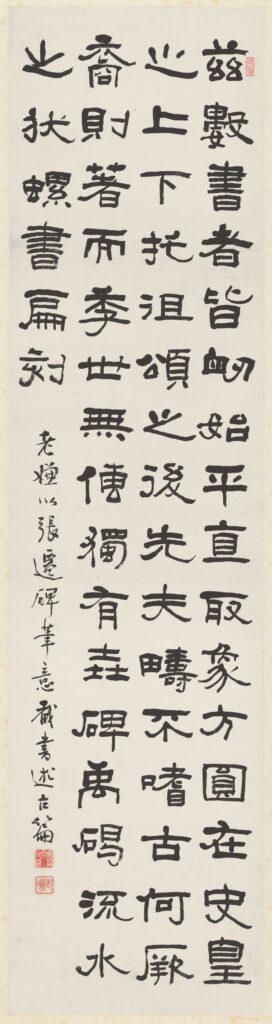 茲數書者皆刱始平直取象方圓在史皇
之上下托沮頌之後先夫疇不嗜古何厥
裔則著而季世無傳獨有垚碑禹碣流水
之狀螺書扁刻
老嫌以張遷碑筆意書述古篇